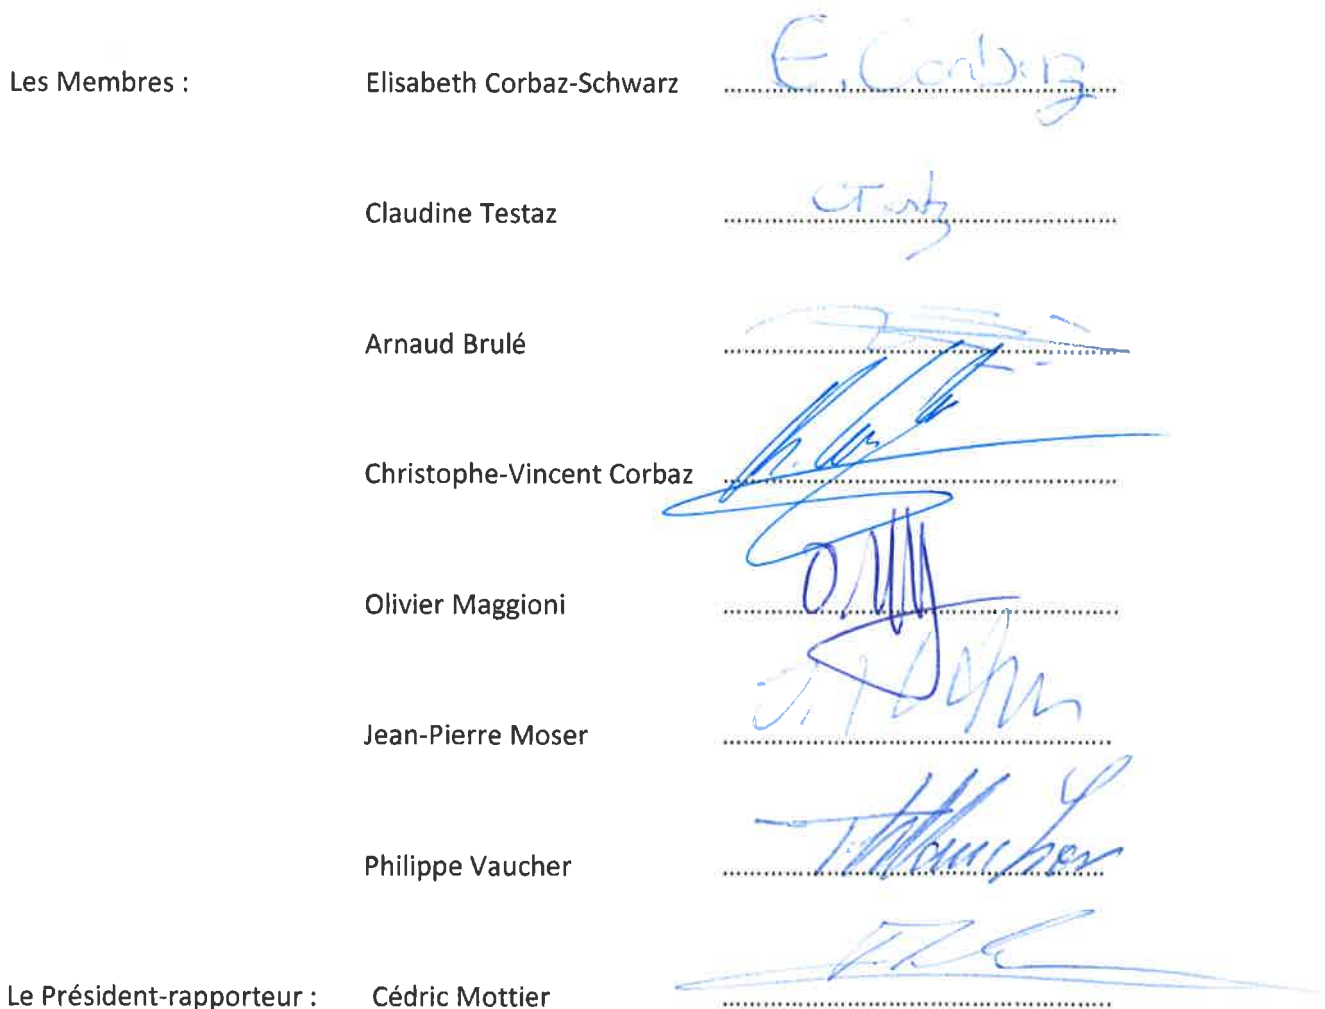 Les Membres : Elisabeth Corbaz-Schwarz E. Corbaz
Claudine Testaz
Arnaud Brulé
Christophe-Vincent Corbaz
Olivier Maggioni
Jean-Pierre Moser
Philippe Vaucher
Le Président-rapporteur : Cédric Mottier